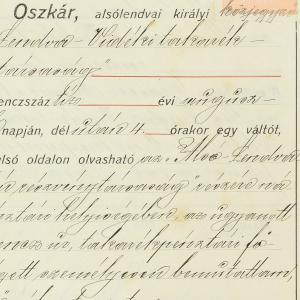 Oszkár, alsólendvai királyi közjegyző
Lendva-Vidéki takarék-
társaság"
enczszáz tíz évi augusz-
napján, dél után 4. órakor egy váltót,
első oldalon olvasható az. Alsó Lendva
részvénytársaság" részére
helyiségében az ugyanott
úr, takarékpénztári fő-
személyesen bemutattam,